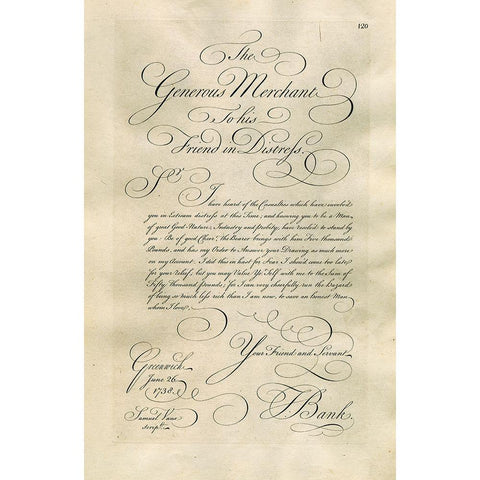 120
The
Generous Merchant
To his
Friend in Distress.
Sr.
I have heard of the Casualties which have involv'd
you in Extream distress at this Time; and knowing you to be a Man
of great Good-Nature, Industry and Probity, have resolv'd to stand by
you. Be of good Chear, the Bearer brings with him Five thousand
Pounds, and has my Order to Answer your Drawing as much more
on my Account. I did this in hast for Fear I should come too late
for your Relief, but you may Value Yo.r Self with me to the Sum of
Fifty Thousand pounds, for I can very chearfully run the Hazard
of being so much less rich than I am now, to save an honest Man
whom I love.
Your Friend and Servant
Greenwich
June 26
1738.
Bank
Samuel Vaux
scrip.t